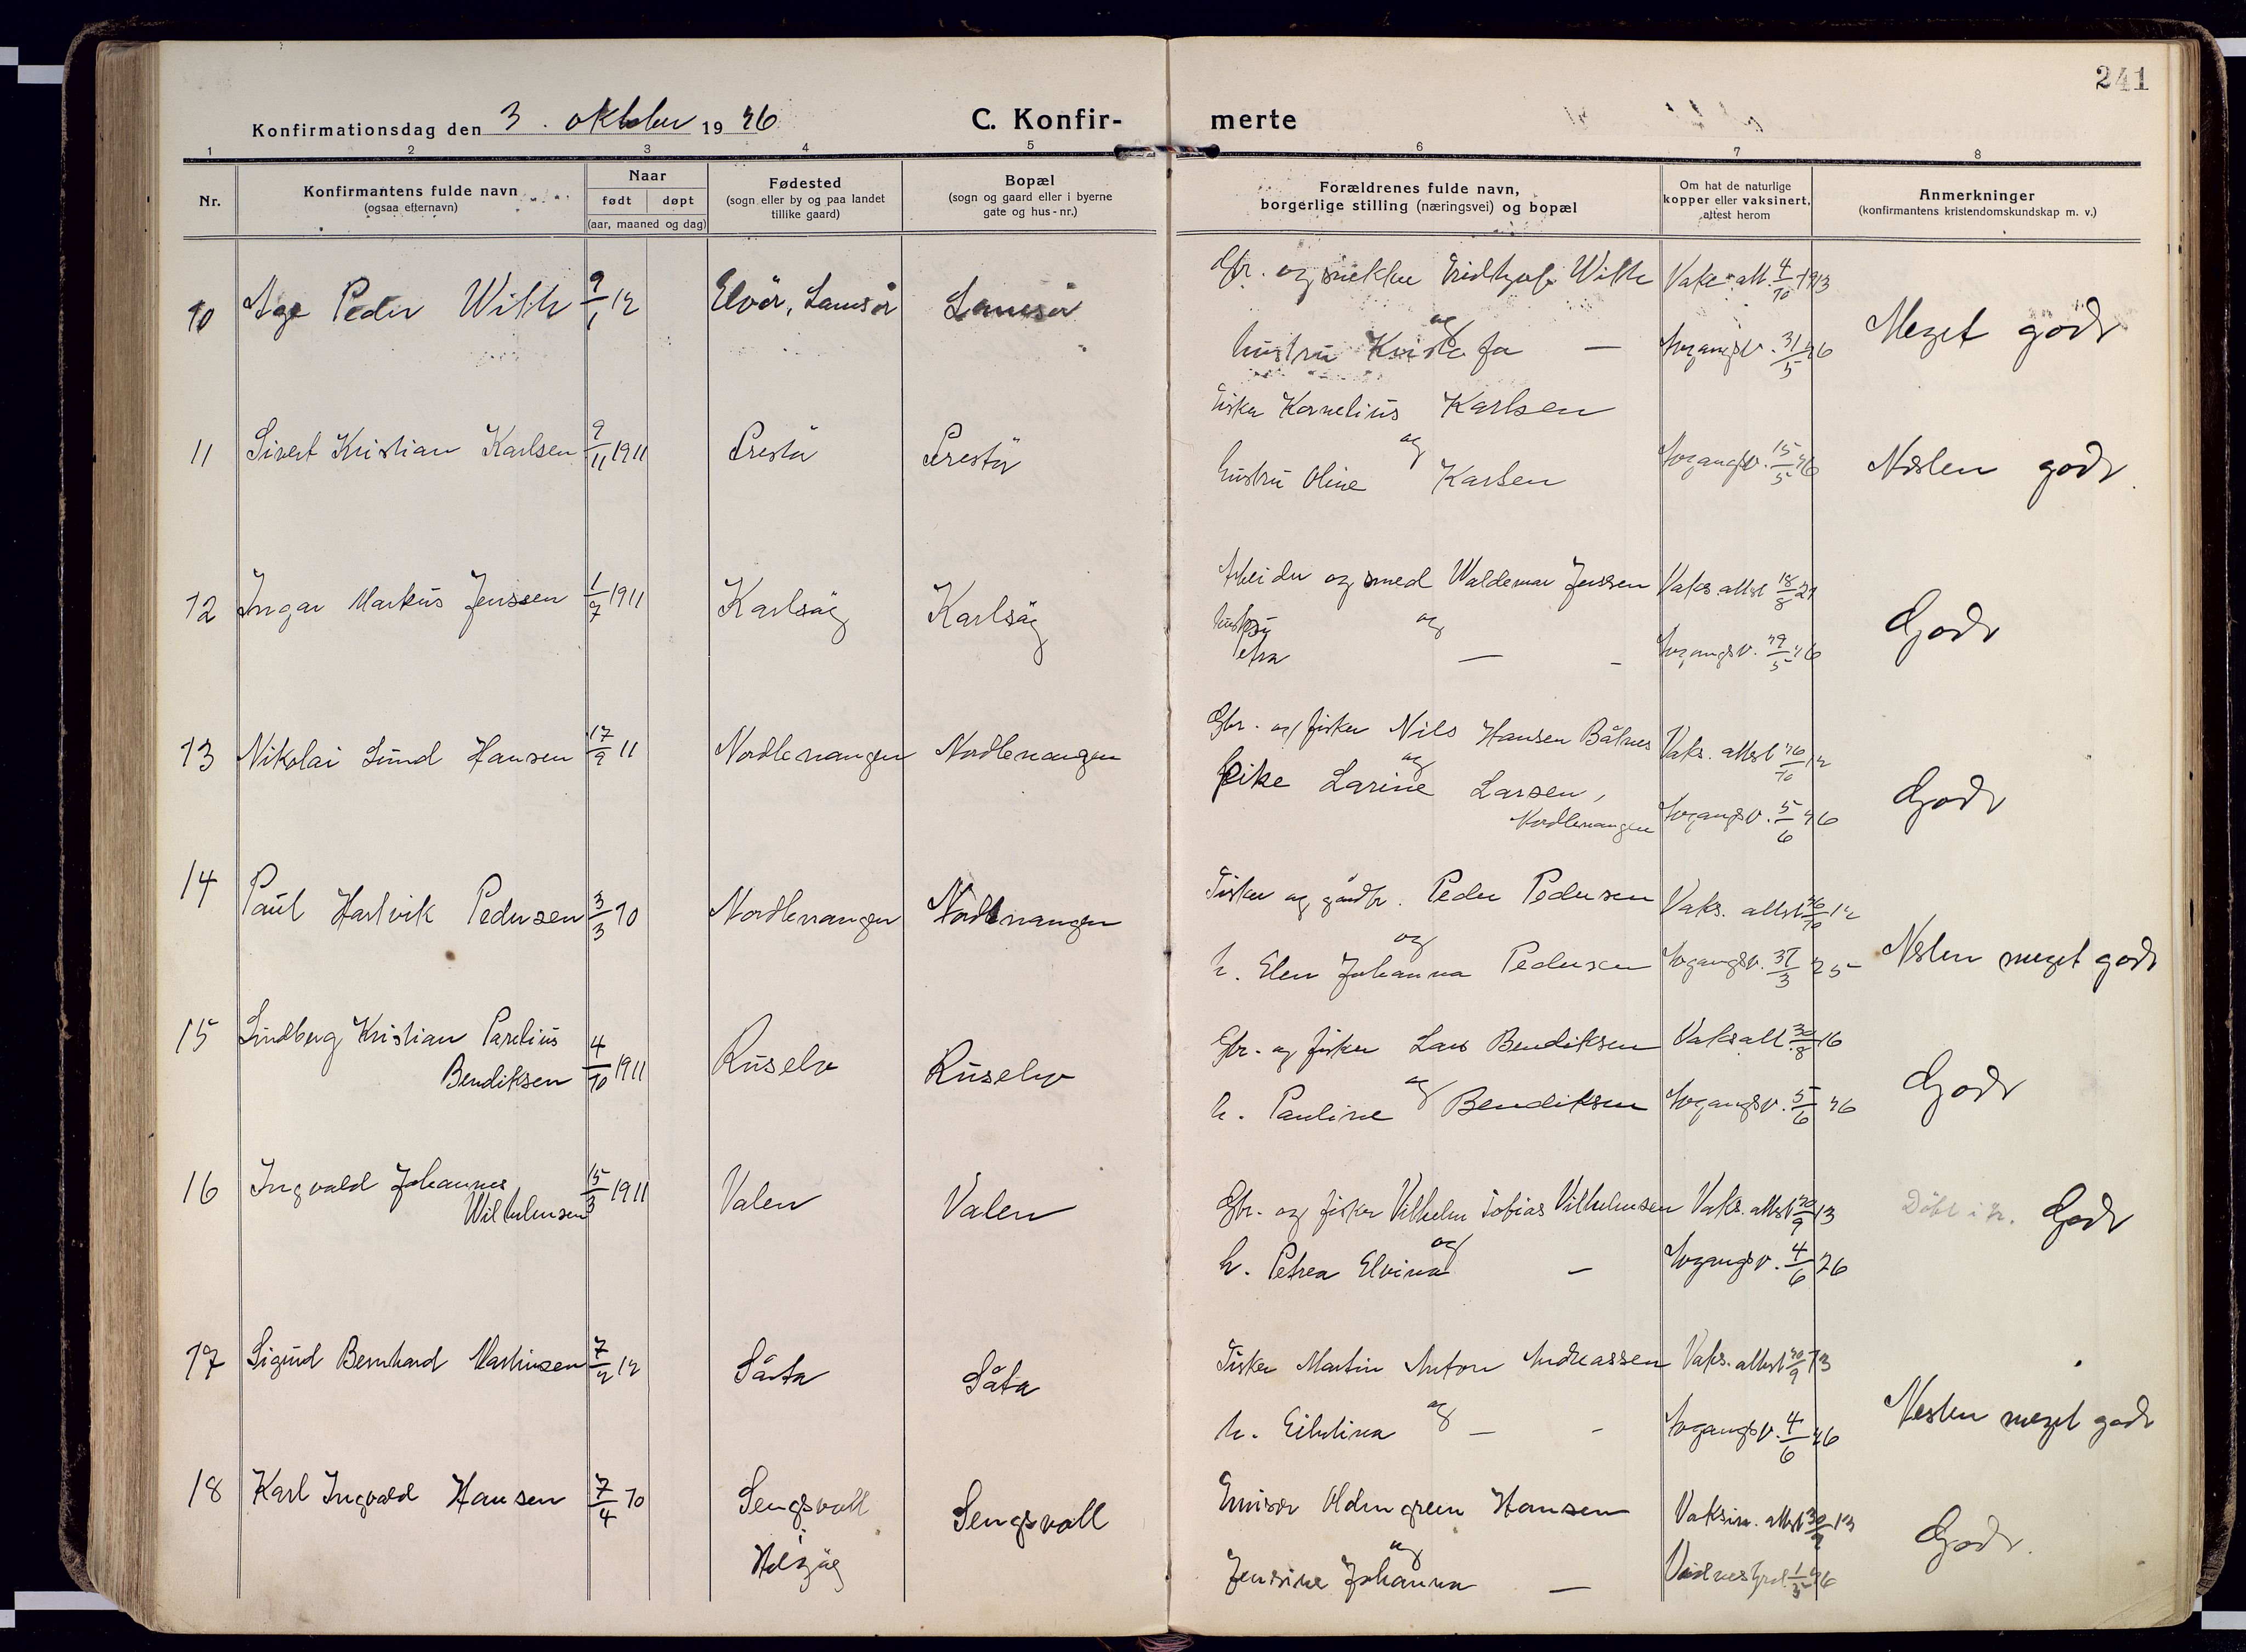 241
Konfirmationsdag den 3. oktober 1926
C. Konfir-merte
1 2 3 4 5 6 7 8
Nr.
Konfirmantens fulde navn
(ogsaa efternavn)
Naar
født døpt
(aar, maaned og dag)
Fødested
(sogn eller by og paa landet
tillike gaard)
Bopæl
(sogn og gaard eller i byerne
gate og hus-nr.)
Forældrenes fulde navn,
borgerlige stilling (næringsvei) og bopæl
Om hat de naturlige
kopper eller vaksinert,
attest herom
Anmerkninger
(konfirmantens kristendomskundskap m. v.)
10 Aage Peder With 9/1 12 Elvör, Lansör Lansör
Gbr. og snekker Fridtjof With Vaks. att. 4/10 1913
og
hustru Kristofa — Avgangsv. 31/5 26 Meget godt
11 Sivert Kristian Karlsen 9/11 1911 Grestø Grestø
Fisker Kornelius Karlsen
og
hustru Oline Karlsen Avgangsv. 15/5 26 Næsten godt.
12 Ingar Markus Jenssen 1/7 1911 Karlsöy Karlsöy
Arbeider og smed Waldemar Jenssen Vaks. attest 18/8 21
og
hustru
Petra — Avgangsv. 29/5 26 Godt
13 Nikolai Lund Hansen 17/9 11 Nordlenangen Nordlenangen
Gbr. og fisker Nils Hansen Båtnes Vaks. attest 26/10 12
og
Pike Larine Larsen,
Nordlenangen Avgangsv. 5/6 26 Godt
14 Paul Hartvik Pedersen 3/3 10 Nordlenangen Nordlenangen
Fisker og gårdbr. Peder Pedersen Vaks. attest 26/10 12
og
h. Elen Johanna Pedersen Avgangsv. 31/3 25 Næsten meget godt
15 Lindberg Kristian Parelius
Bendiksen 4/10 1911 Ruselv Ruselv
Gbr. og fisker Lars Bendiksen Vaks att 30/8 16
og
h. Pauline Bendiksen Avgangsv. 5/6 26 Godt
16 Ingvald Johannes
Wilhelmsen 15/3 1911 Valen Valen
Gbr. og fisker Vilhelm Tobias Vilhelmsen Vaks. attest 20/9 13
Døbt i k. Godt
og
h. Petrea Elvina — Avgangsv. 4/6 26
17 Sigurd Bernhard Martinsen 7/2 12 Såta Såta
Fisker Martin Anton Andreassen Vaks. attest 20/9 13
og
h. Eilertina — - Avgangsv. 4/6 26 Næsten meget godt
18 Karl Ingvald Hansen 7/4 10 Sengsvoll
i
Helgøy
Sengsvoll
Emissær Oldengreen Hansen Vaksin. attest 30/9 13
og
Jensine Johanna — Vidnesbyrd 1/5 26 Godt.